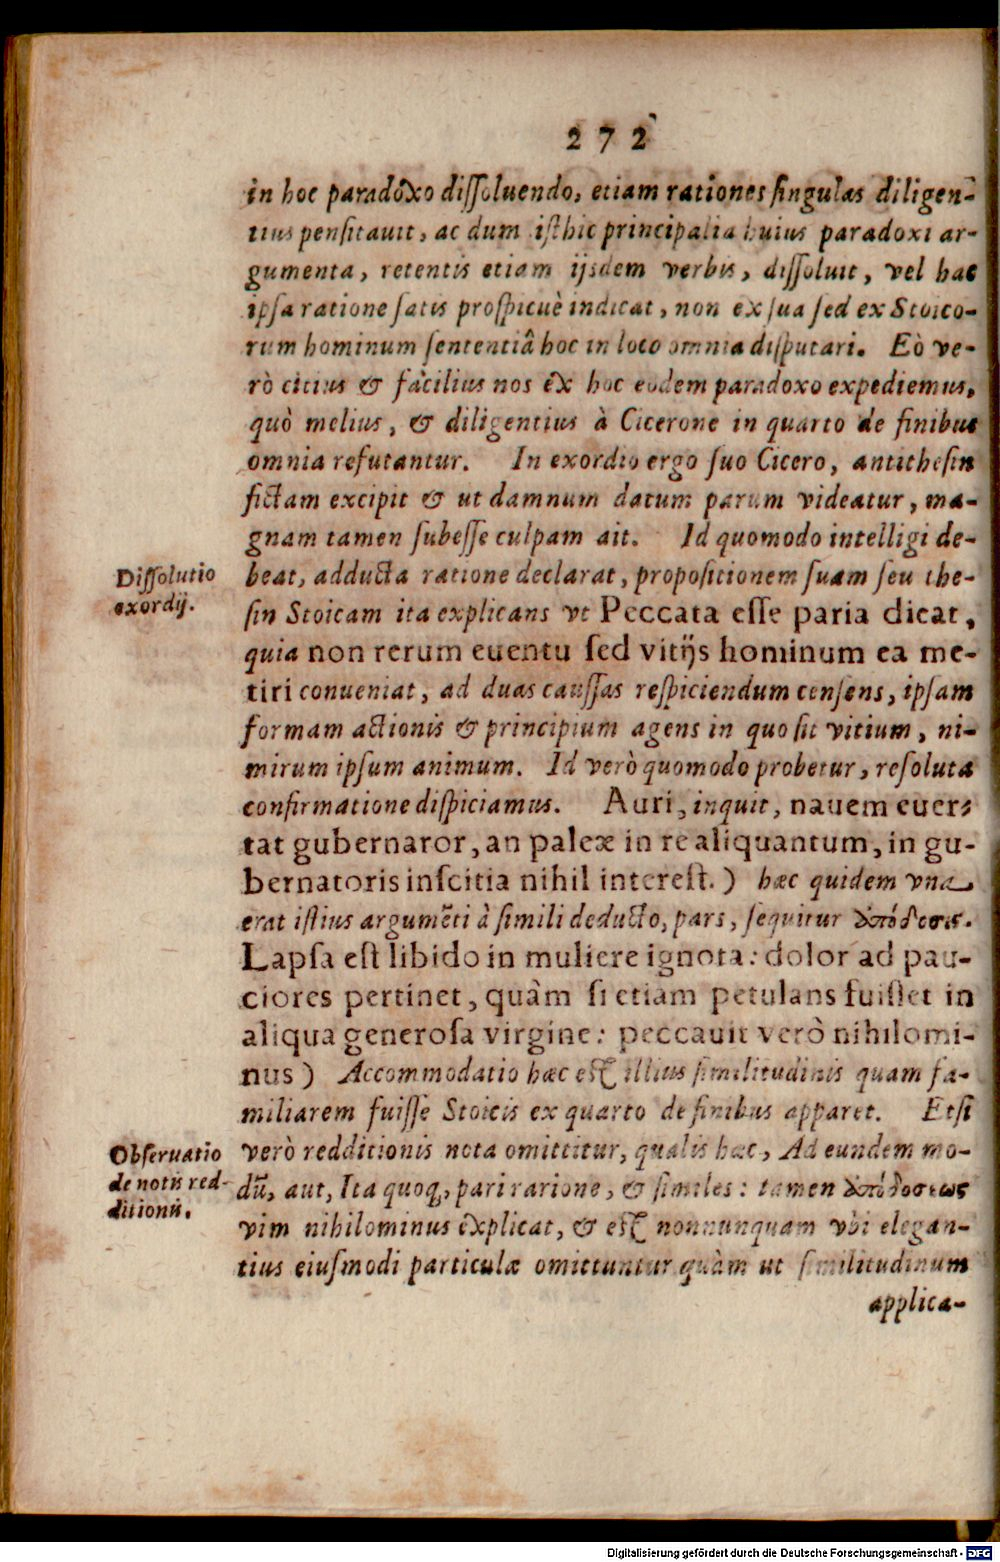 272
in hoc paradoxo dissoluendo, etiam rationes singulas diligen-
tius pensitauit, ac dum isthic principalia huius paradoxi ar-
gumenta, retentis etiam ijsdem verbis, dissoluit, vel hac
ipsa ratione satis prospicuè indicat, non ex sua sed ex Stoico-
rum hominum sententiâ hoc in loco omnia disputari. Eò ve-
rò citius & facilius nos ex hoc eodem paradoxo expediemus,
quò melius, & diligentius à Cicerone in quarto de finibus
omnia refutantur. In exordio ergo suo Cicero, antithesin
fictam excipit & ut damnum datum parum videatur, ma-
gnam tamen subesse culpam ait. Id quomodo intelligi de-
Dissolutio
exordij.
beat, adducta ratione declarat, propositionem suam seu the-
sin Stoicam ita explicans vt Peccata esse paria dicat,
quia non rerum euentu sed vitijs hominum ea me-
tiri conueniat, ad duas caussas respiciendum censens, ipsam
formam actionis & principium agens in quo sit vitium, ni-
mirum ipsum animum. Id verò quomodo probetur, resoluta
confirmatione dispiciamus. Auri, inquit, nauem euer-
tat gubernaror, an paleæ in re aliquantum, in gu-
bernatoris inscitia nihil interest.) hæc quidem vna
erat istius argumẽti à simili deducto, pars, sequitur ἀπόδοσις.
Lapsa est libido in muliere ignota: dolor ad pau-
ciores pertinet, quàm si etiam petulans fuisset in
aliqua generosa virgine: peccauit verò nihilomi-
nus) Accommodatio hæc est illius similitudinis quam fa-
miliarem fuisse Stoicis ex quarto de finibus apparet. Etsi
Obseruatio
de notis red-
ditionis.
verò redditionis nota omittitur, qualis hæc, Ad eundem mo-
dũ, aut, Ita quoq, pari rarione, & similes: tamen ἀπόδοσεως
vim nihilominus explicat, & est nonnunquam vbi elegan-
tius eiusmodi particulæ omittuntur quàm ut similitudinum
applica-
Digitalisierung gefördert durch die Deutsche Forschungsgemeinschaft - DFG